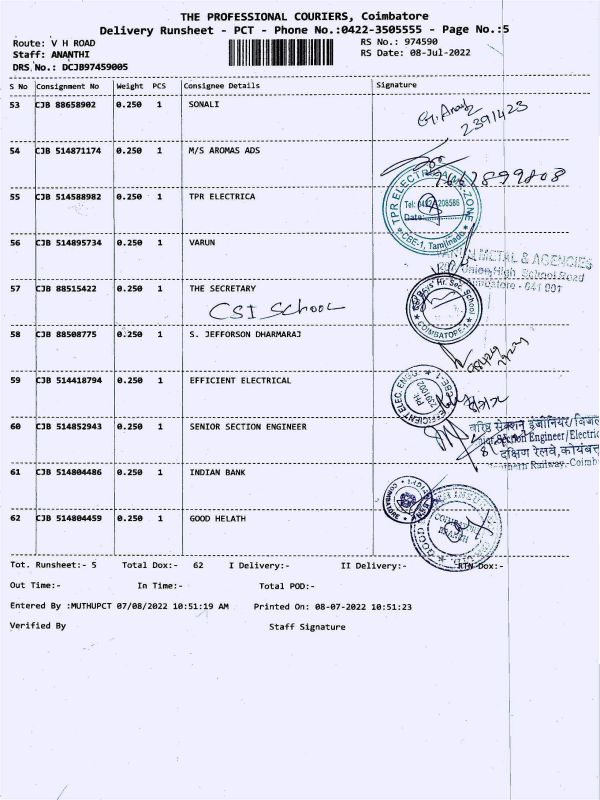 THE PROFESSIONAL COURIERS, Coimbatore
Delivery Runsheet - PCT - Phone No.:0422-3505555 - Page No.:5
Route: V H ROAD
RS No.: 974590
Staff: ANANTHI
RS Date: 08-Jul-2022
DRS No.: DCJB97459005
S No Consignment No Weight PCS Consignee Details Signature
53 CJB 88658902 0.250 1 SONALI
2391423
54 CJB 514871174 0.250 1 M/S AROMAS ADS
55 CJB 514588982 0.250 1 TPR ELECTRICA
TPR ELECTRICAL
Tel: 0422
208586
Date
CBE-1, Tamilnadu
56 CJB 514895734 0.250 1 VARUN
METAL & AGENCIES
Union High School Road
641 001
57 CJB 88515422 0.250 1 THE SECRETARY
CSI School
Boys' Hr. Sec School
COIMBATORE-1
58 CJB 88508775 0.250 1 S. JEFFORSON DHARMARAJ
59 CJB 514418794 0.250 1 EFFICIENT ELECTRICAL
EFFICIENT ELEC. ENGG. CBE-1
60 CJB 514852943 0.250 1 SENIOR SECTION ENGINEER
वरिष्ठ सेक्शन इंजीनियर/
Section Engineer/Electric
दक्षिण रेलवे, कोयंबत्त
Railway, Coimb
61 CJB 514804486 0.250 1 INDIAN BANK
COIMBATORE
62 CJB 514804459 0.250 1 GOOD HELATH
COIMBATORE
BRANCH
GOOD
Tot. Runsheet:- 5 Total Dox:- 62 I Delivery:- II Delivery:- RTN Dox:-
Out Time:- In Time:- Total POD:-
Entered By :MUTHUPCT 07/08/2022 10:51:19 AM Printed On: 08-07-2022 10:51:23
Verified By Staff Signature